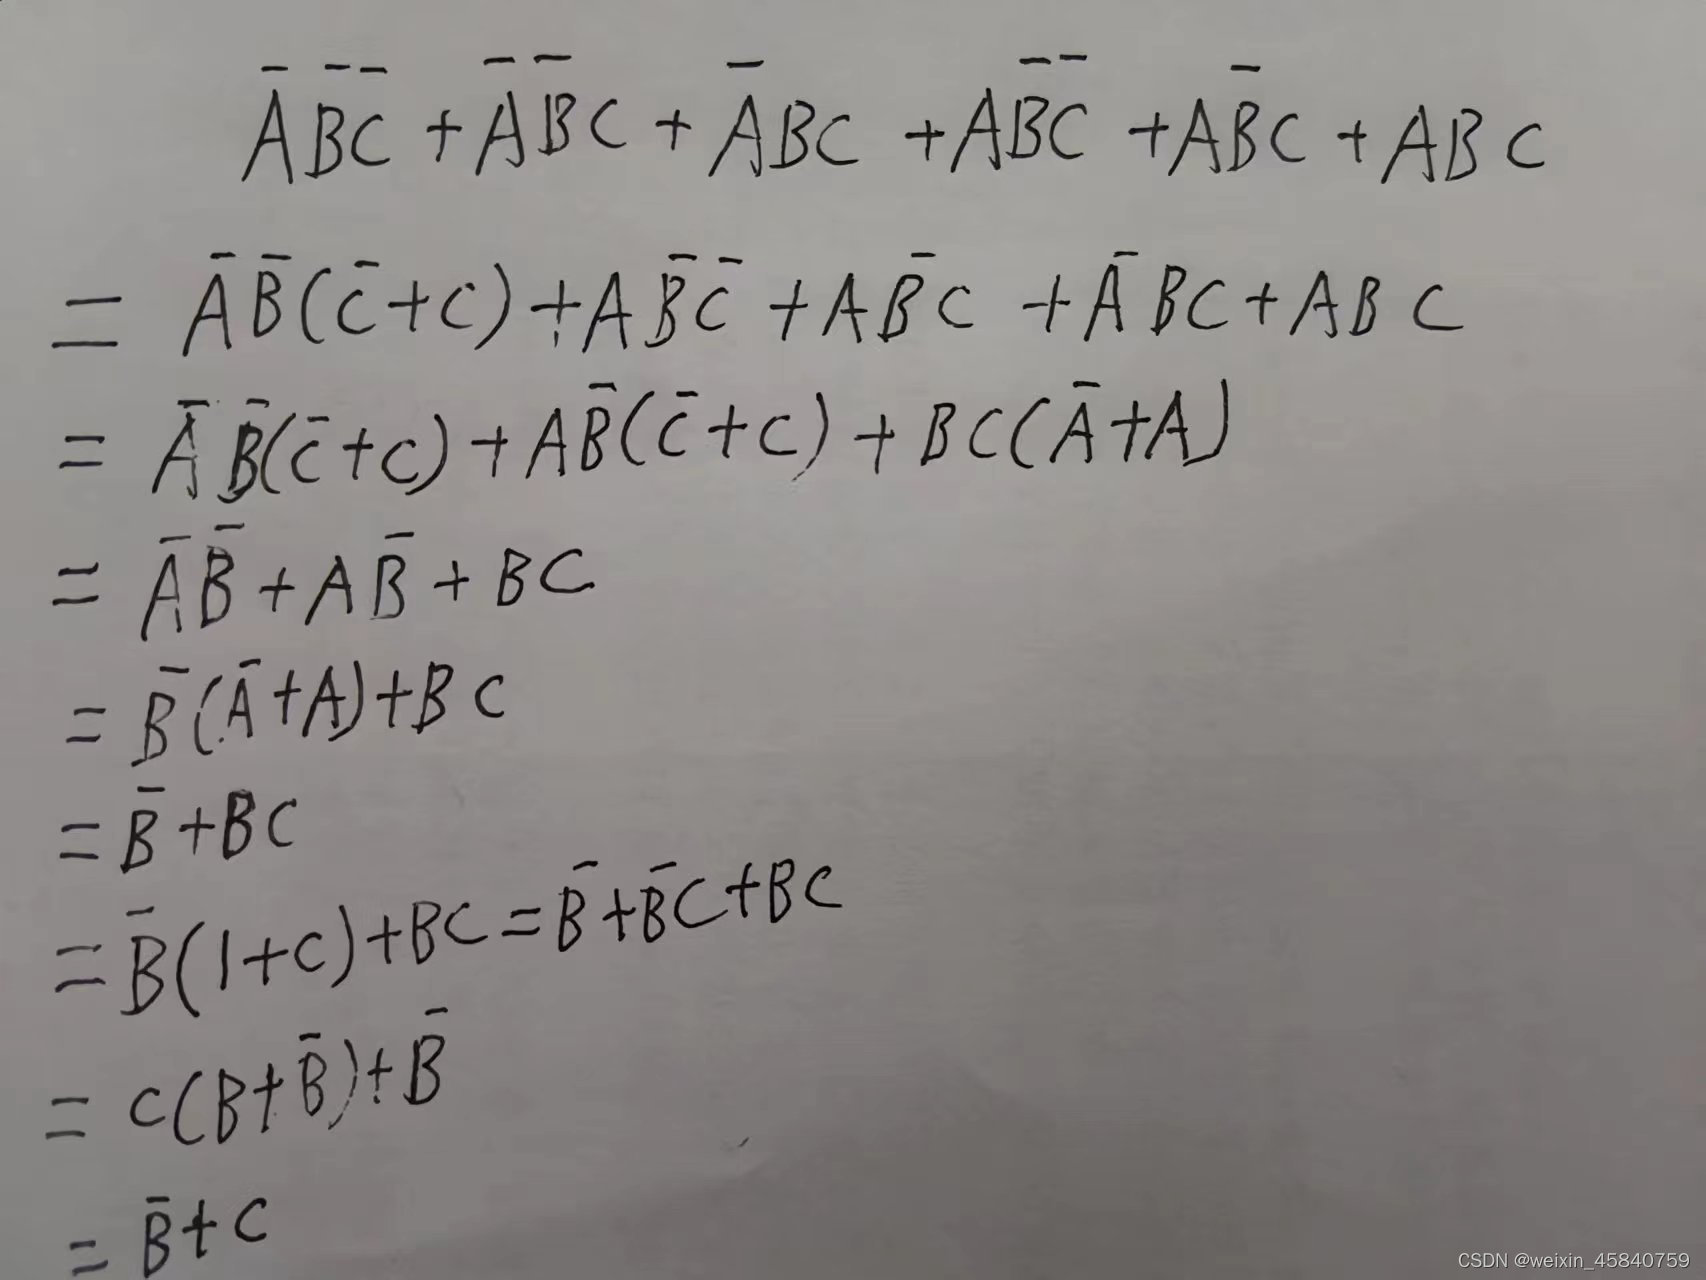 A̅B̅C̅ + A̅B̅C + A̅BC + AB̅C̅ + AB̅C + ABC
= A̅B̅(C̅+C) + AB̅C̅ + AB̅C + A̅BC + ABC
= A̅B̅(C̅+C) + AB̅(C̅+C) + BC(A̅+A)
= A̅B̅ + AB̅ + BC
= B̅(A̅+A)+BC
= B̅+BC
= B̅(1+C)+BC = B̅+B̅C+BC
= C(B+B̅)+B̅
= B̅+C
CSDN @weixin_45840759